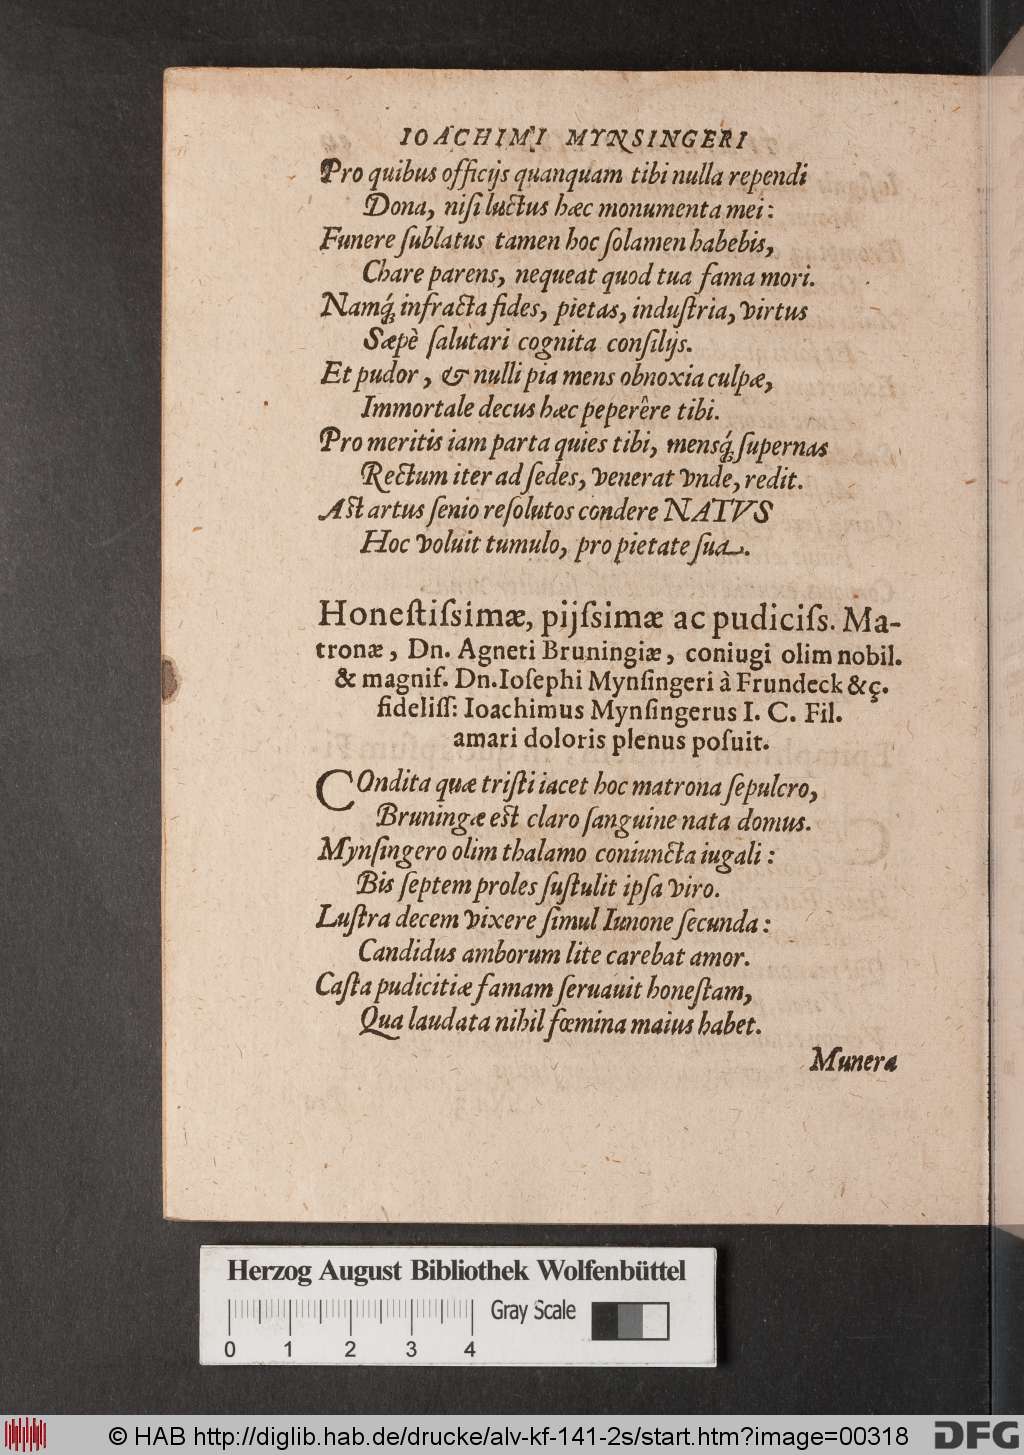 IOACHIMI MYNSINGERI
Pro quibus officijs quanquam tibi nulla rependi
Dona, niſi luctus hæc monumenta mei:
Funere ſublatus tamen hoc ſolamen habebis,
Chare parens, nequeat quod tua fama mori.
Namq́ infracta fides, pietas, induſtria, virtus
Sæpè ſalutari cognita conſilijs.
Et pudor, & nulli pia mens obnoxia culpæ,
Immortale decus hæc peperêre tibi.
Pro meritis iam parta quies tibi, mensq́ ſupernas
Rectum iter ad ſedes, venerat vnde, redit.
Aſt artus ſenio reſolutos condere NATVS
Hoc voluit tumulo, pro pietate ſua.
Honeſtiſsimæ, pijſsimæ ac pudiciſs. Ma-
tronæ, Dn. Agneti Bruningiæ, coniugi olim nobil.
& magnif. Dn. Ioſephi Mynſingeri à Frundeck &ç.
fideliſſ: Ioachimus Mynſingerus I. C. Fil.
amari doloris plenus poſuit.
COndita quæ triſti iacet hoc matrona ſepulcro,
Bruningæ eſt claro ſanguine nata domus.
Mynſingero olim thalamo coniuncta iugali:
Bis ſeptem proles ſuſtulit ipſa viro.
Luſtra decem vixere ſimul Iunone ſecunda:
Candidus amborum lite carebat amor.
Caſta pudicitiæ famam ſeruauit honeſtam,
Qua laudata nihil fœmina maius habet.
Munera
Herzog August Bibliothek Wolfenbüttel
Gray Scale
0 1 2 3 4
© HAB http://diglib.hab.de/drucke/alv-kf-141-2s/start.htm?image=00318
DFG